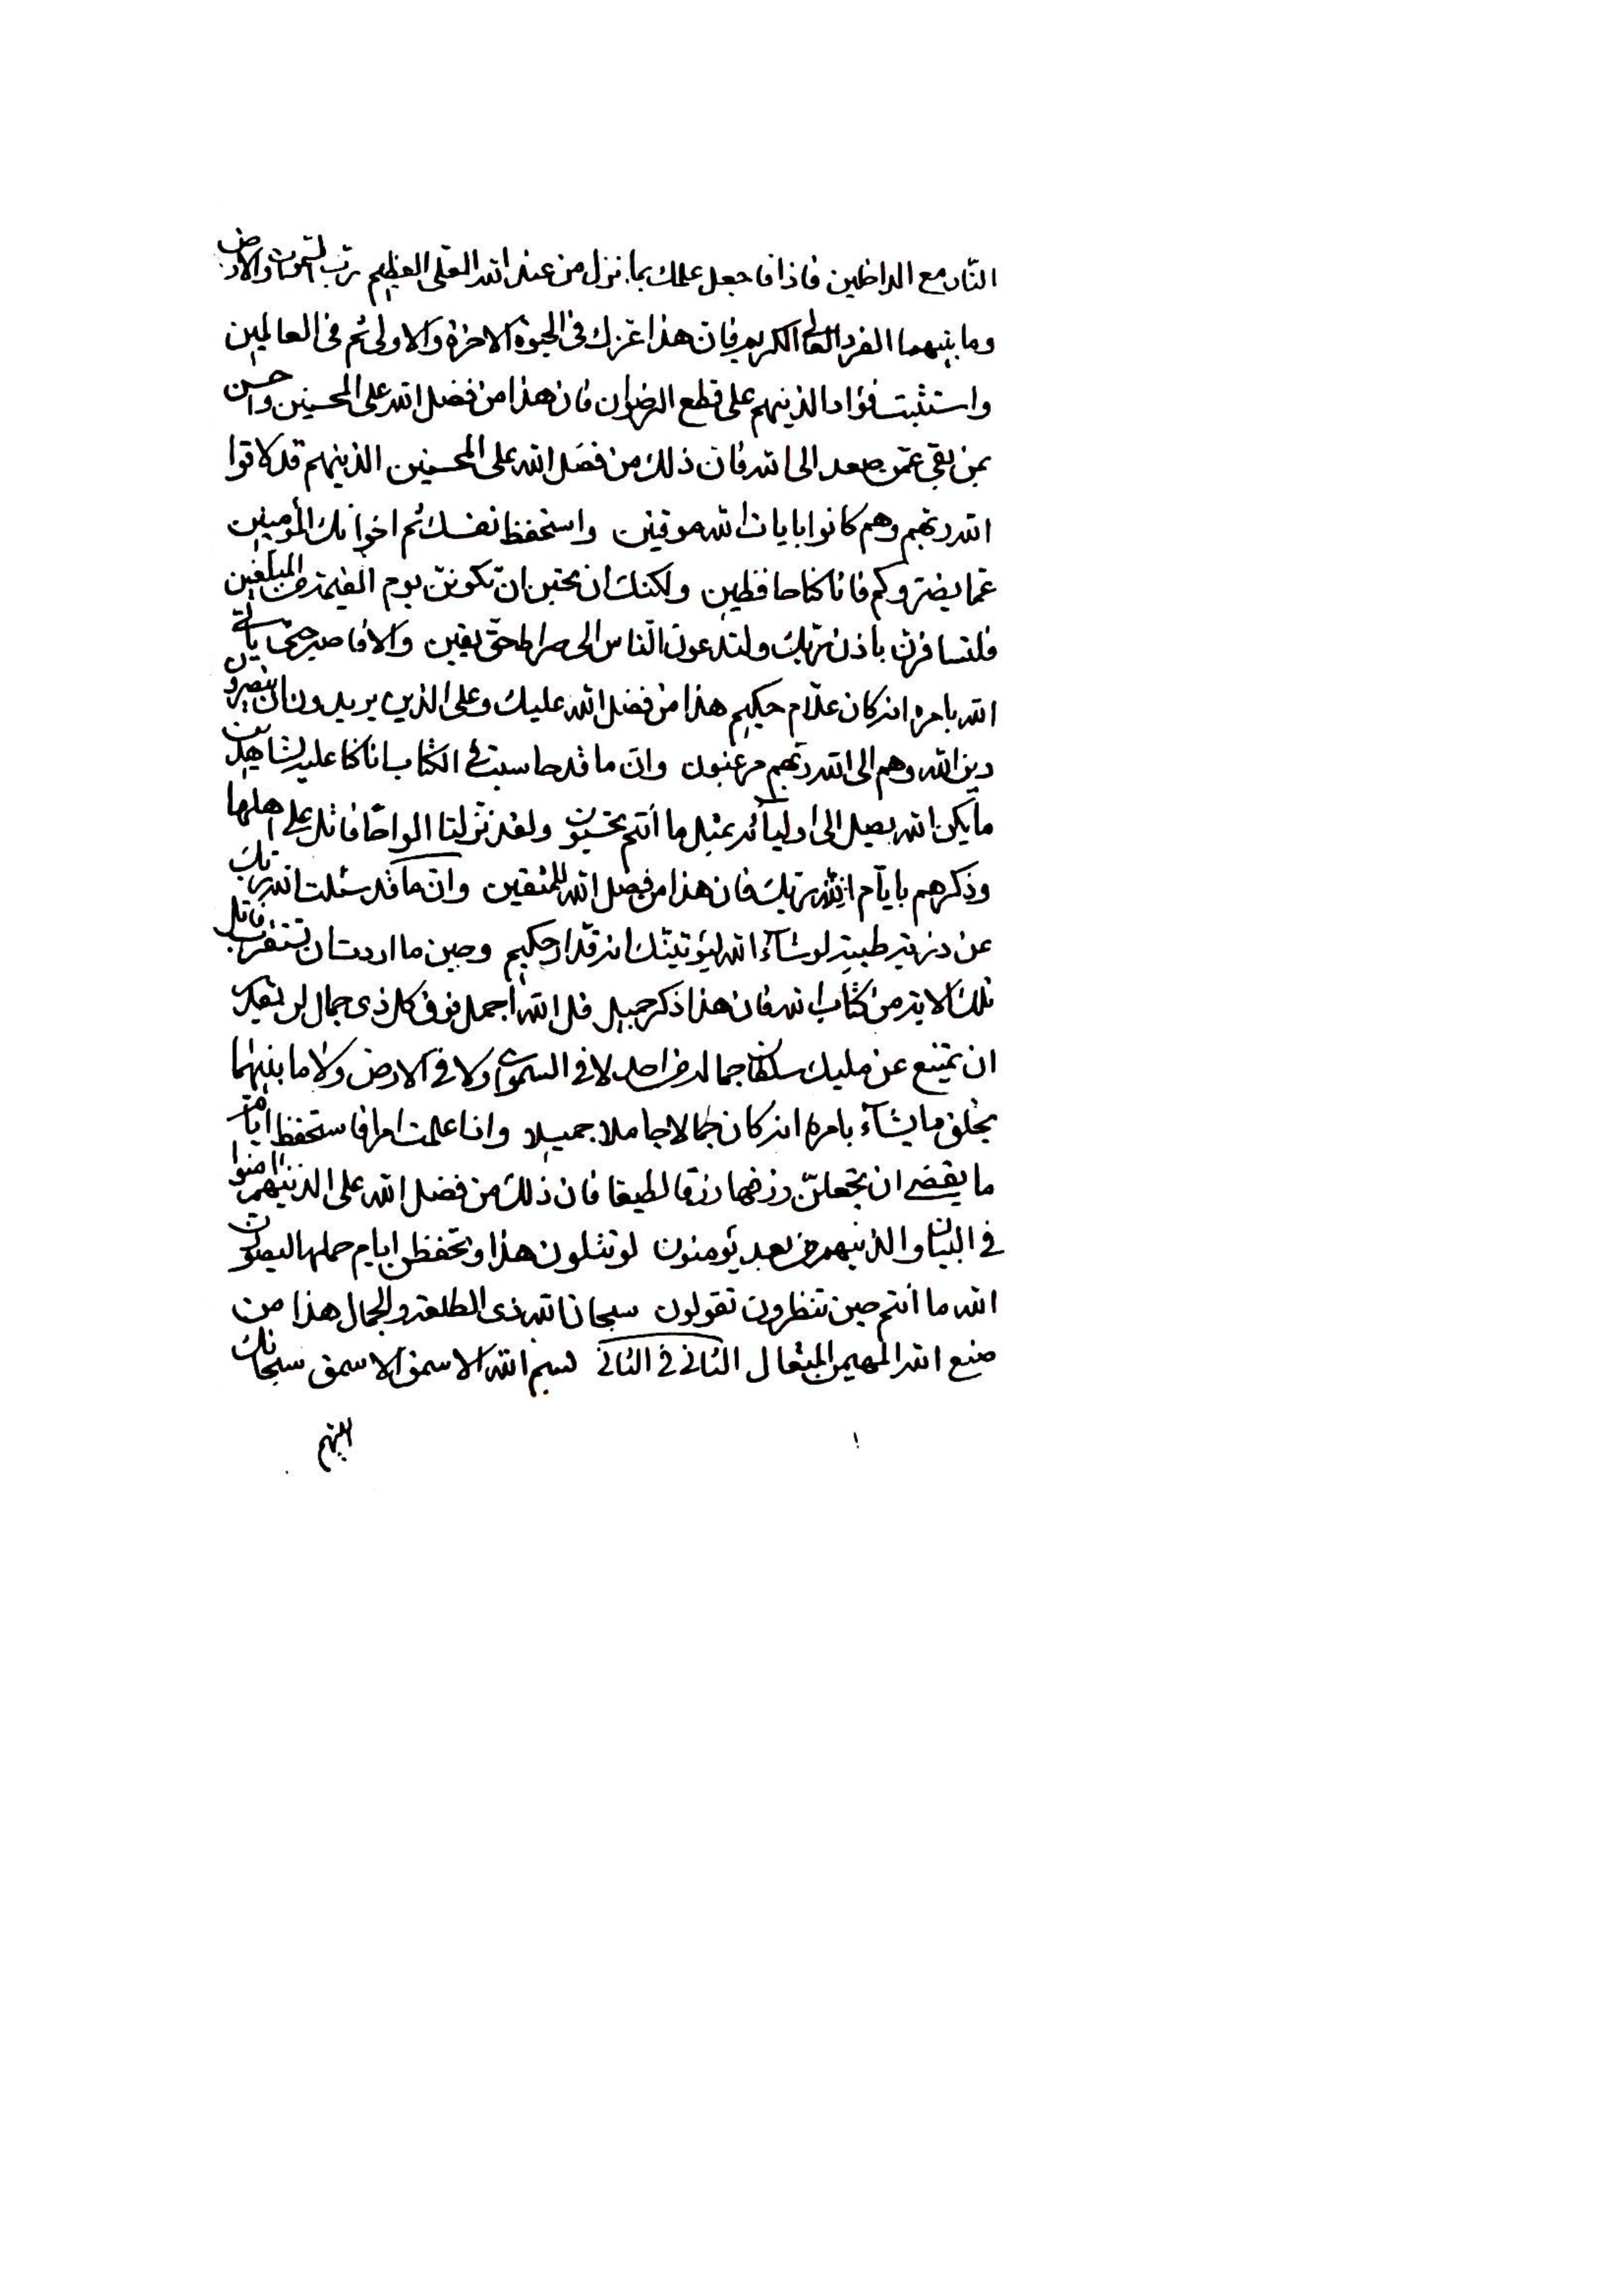 النّار مع الداخلين فاذا فاجعل علمك بما نزل من عند الله العلى العظيم ربّ السّموات والارض
وما بينهما الفرد العالى الكريم فان هذا عزّك فى الحيوة الاخرة والاولى ثم فى العالمين
واستثبت فؤاد الذينهم على قطع الرضوان فان هذا من فضل الله على المحسنين واحسن
بمن بقى عمّن صعد الى الله فان ذلك من فضل الله على المحسنين الذينهم قد لاقوا
الله ربّهم وهم كانوا بايات الله موقنين واستحفظ نفسك ثم اخوانك المؤمنين
عمّا يضروكم فانا كنا حافظين ولكنك ان تحبن ان تكوننّ يوم القيمة من المبلّغين
فلتسافرنّ باذن ربّك ولتدعونّ النّاس الى صراط حقّ يقين والا فاصبر حتى ياتى
الله بامره انه كان علّام حكيم هذا من فضل الله عليك وعلى الذين يريدون ان ينصرون
دين الله وهم الى الله ربّهم مرغبون وان ما قد حاسبت فى الكتاب انا كنا عليه لشاهدين
ما يكن الله يصل الى اوليائه بمثل ما أنتم تحسبون ولقد نزلنا الواحًا فاتل على اهلها
وذكرهم بايّام الله ربّك فان هذا من فضل الله للمتقين وان ما قد سئلت الله ربّك
عن ذرية طيبة لو شآء الله ليؤتينّك انه قدّار حكيم وحين ما اردت ان تستقرب فاتل
تلك الاية من كتاب الله فان هذا ذكر جميل قل الله اجمل فوق كل ذى جمال لن يقدر
ان يمتنع عن مليك سلطان جماله من احد لا فى السموات ولا فى الارض ولا ما بينهما
يخلق ما يشآء بامره انه كان جمالا جاملا جميلا واذا علمت امرا فاستحفظ ايامه
ما يقضى ان تجعلنّ رزقها رزقا لطيفا فان ذلك من فضل الله على الذينهم امنوا
فى البيان والذينهم من بعد يؤمنون لو تتلون هذا وتحفظن ايام حملها ليصورن
الله ما أنتم حين تنظرون تقولون سبحان الله ذى الطلعة والجمال هذا من
صنع الله المهيمن المتعال الثانى فى الثانى بسم الله الاسمق الاسمق سبحانك
اللهم